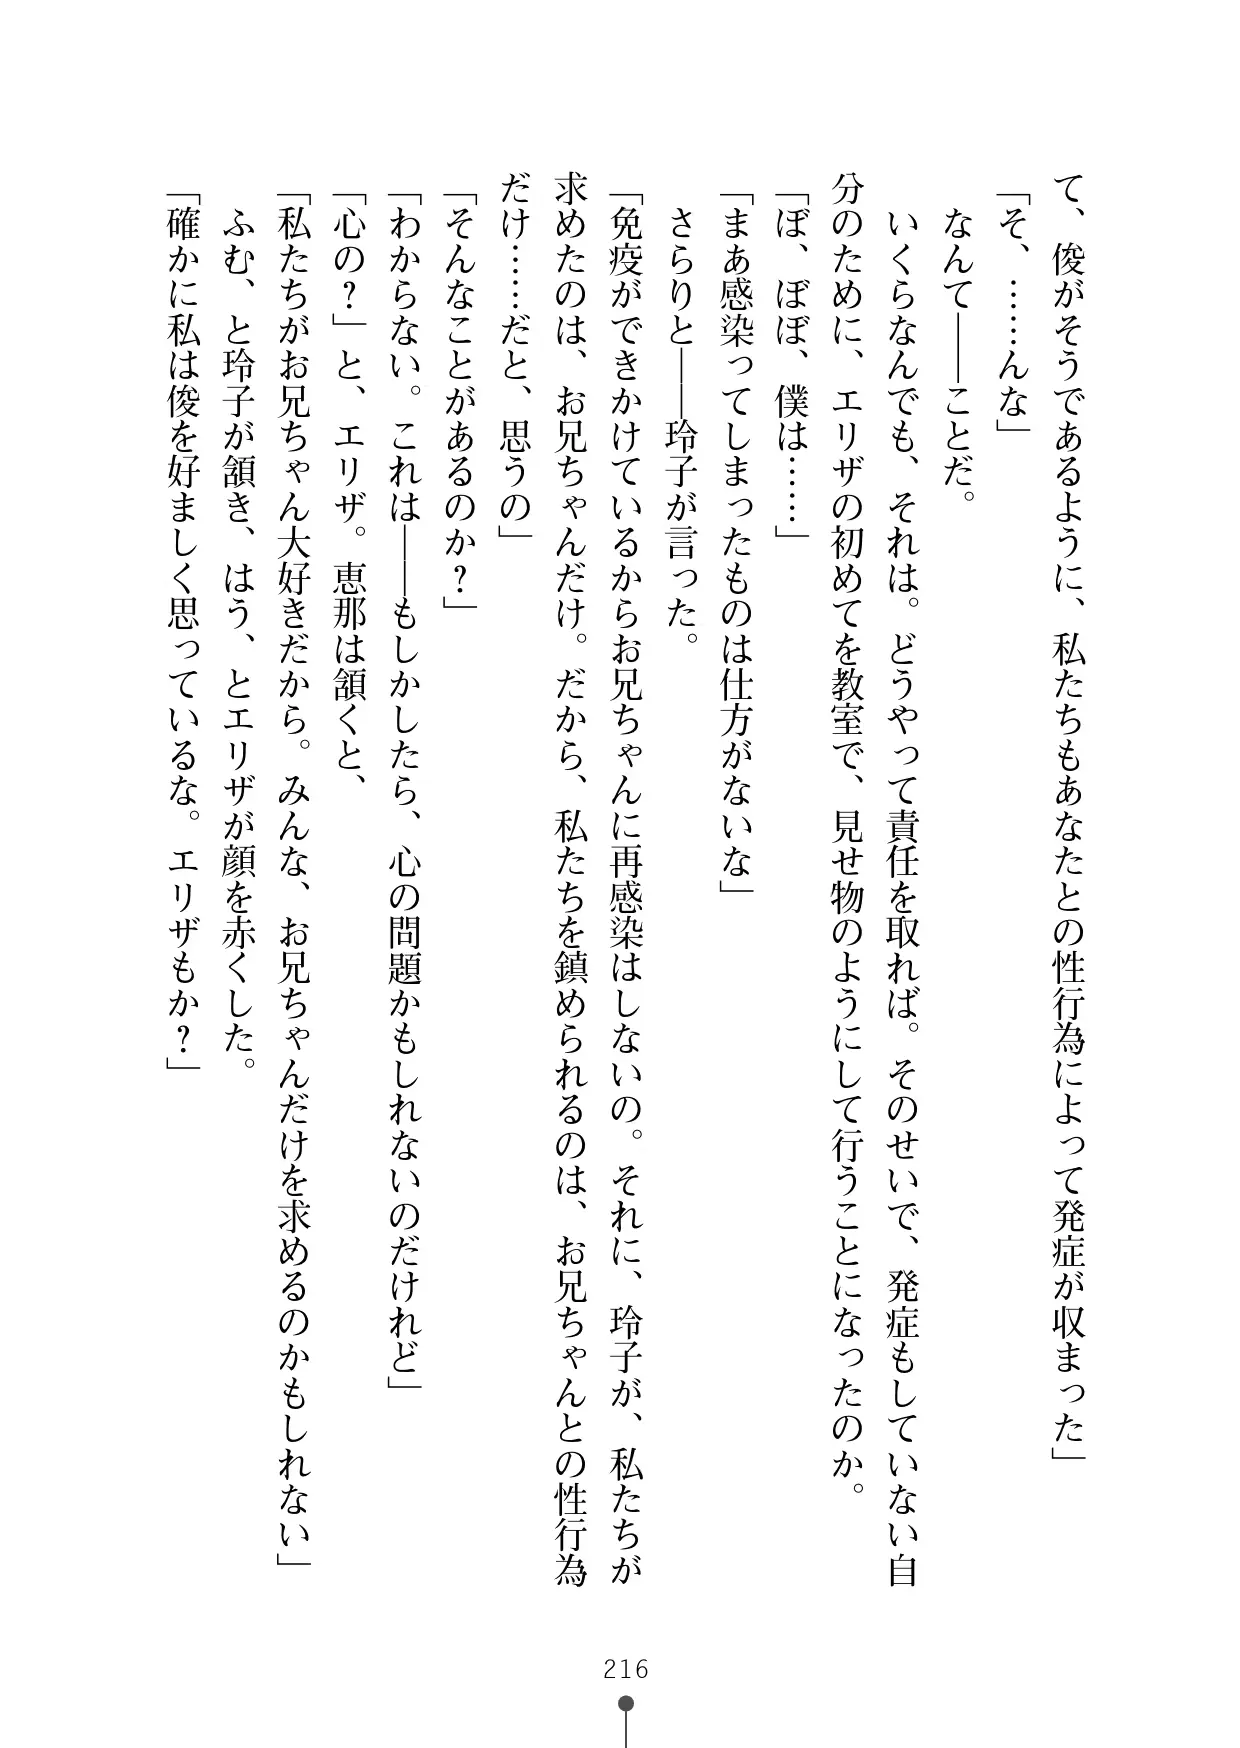 て、俊がそうであるように、私たちもあなたとの性行為によって発症が収まった」
「そ、……んな」
なんて――ことだ。
いくらなんでも、それは。どうやって責任を取れば。そのせいで、発症もしていない自
分のために、エリザの初めてを教室で、見せ物のようにして行うことになったのか。
「ぼ、ぼぼ、僕は……」
「まあ感染ってしまったものは仕方がないな」
さらりと――玲子が言った。
「免疫ができかけているからお兄ちゃんに再感染はしないの。それに、玲子が、私たちが
求めたのは、お兄ちゃんだけ。だから、私たちを鎮められるのは、お兄ちゃんとの性行為
だけ……だと、思うの」
「そんなことがあるのか？」
「わからない。これは――もしかしたら、心の問題かもしれないのだけれど」
「心の？」と、エリザ。恵那は頷くと、
「私たちがお兄ちゃん大好きだから。みんな、お兄ちゃんだけを求めるのかもしれない」
ふむ、と玲子が頷き、はう、とエリザが顔を赤くした。
「確かに私は俊を好ましく思っているな。エリザもか？」
216